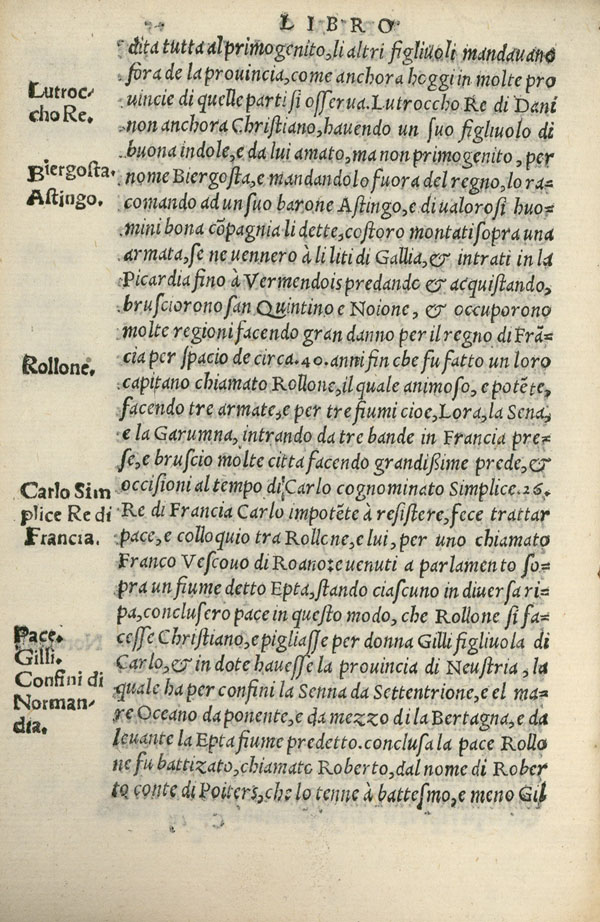 LIBRO
dita tutta al primogenito, li altri figliuoli mandauano
fora de la prouincia, come anchora hoggi in molte pro
uincie di quelle parti si osserua. Lutroccho Re di Dani
non anchora Christiano, hauendo un suo figliuolo di
buona indole, e da lui amato, ma non primogenito, per
nome Biergosta, e mandandolo fuora del regno, lo ra=
comando ad un suo barone Astingo, e di ualorosi huo=
mini bona cōpagnia li dette, costoro montati sopra una
armata, se ne uennero à li liti di Gallia, & intrati in la
Picardia fino à Vermendois predando & acquistando,
brusciorono san Quintino e Noione, & occuporono
molte regioni facendo gran danno per il regno di Frā=
cia per spacio de circa .40. anni fin che fu fatto un loro
capitano chiamato Rollone, il quale animoso, e potēte,
facendo tre armate, e per tre fiumi cioe, Lora, la Sena,
e la Garumna, intrando da tre bande in Francia pre=
se, e bruscio molte citta facendo grandißime prede, &
occisioni al tempo di Carlo cognominato Simplice .26.
Re di Francia Carlo impotēte à resistere, fece trattar
pace, e colloquio tra Rollone, e lui, per uno chiamato
Franco Vescouo di Roano: e uenuti a parlamento so=
pra un fiume detto Epta, stando ciascuno in diuersa ri=
pa, conclusero pace in questo modo, che Rollone si fa=
cesse Christiano, e pigliasse per donna Gilli figliuola di
Carlo, & in dote hauesse la prouincia di Neustria, la
quale ha per confini la Senna da Settentrione, e el ma=
re Oceano da ponente, e da mezzo di la Bertagna, e da
leuante la Epta fiume predetto. conclusa la pace Rollo
ne fu battizato, chiamato Roberto, dal nome di Rober
to conte di Poiters, che lo tenne à battesmo, e meno Gil
Lutroc=
cho Re.
Biergosta.
Astingo.
Rollone.
Carlo Sim
plice Re di
Francia.
Pace.
Gilli.
Confini di
Norman=
dia.